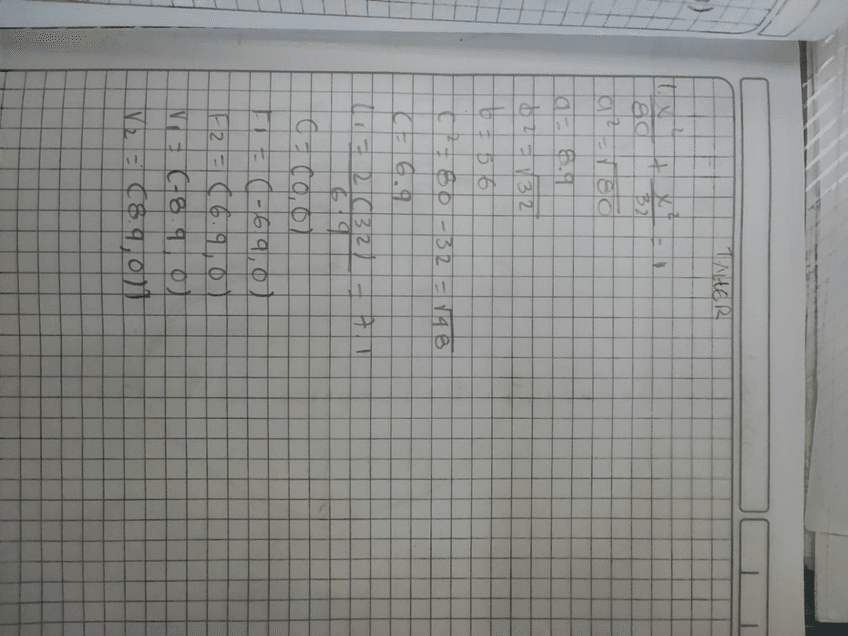 TALLER
1. x²/80 + x²/32 = 1
a² = √80
a = 8.9
b² = √32
b = 5 6
c² = 80 - 32 = √48
c = 6.9
L1 = 2(32)/6.9 = 7.1
C = (0,0)
F1 = (-6.9,0)
F2 = (6.9,0)
V1 = (-8.9,0)
V2 = (8.9,0)